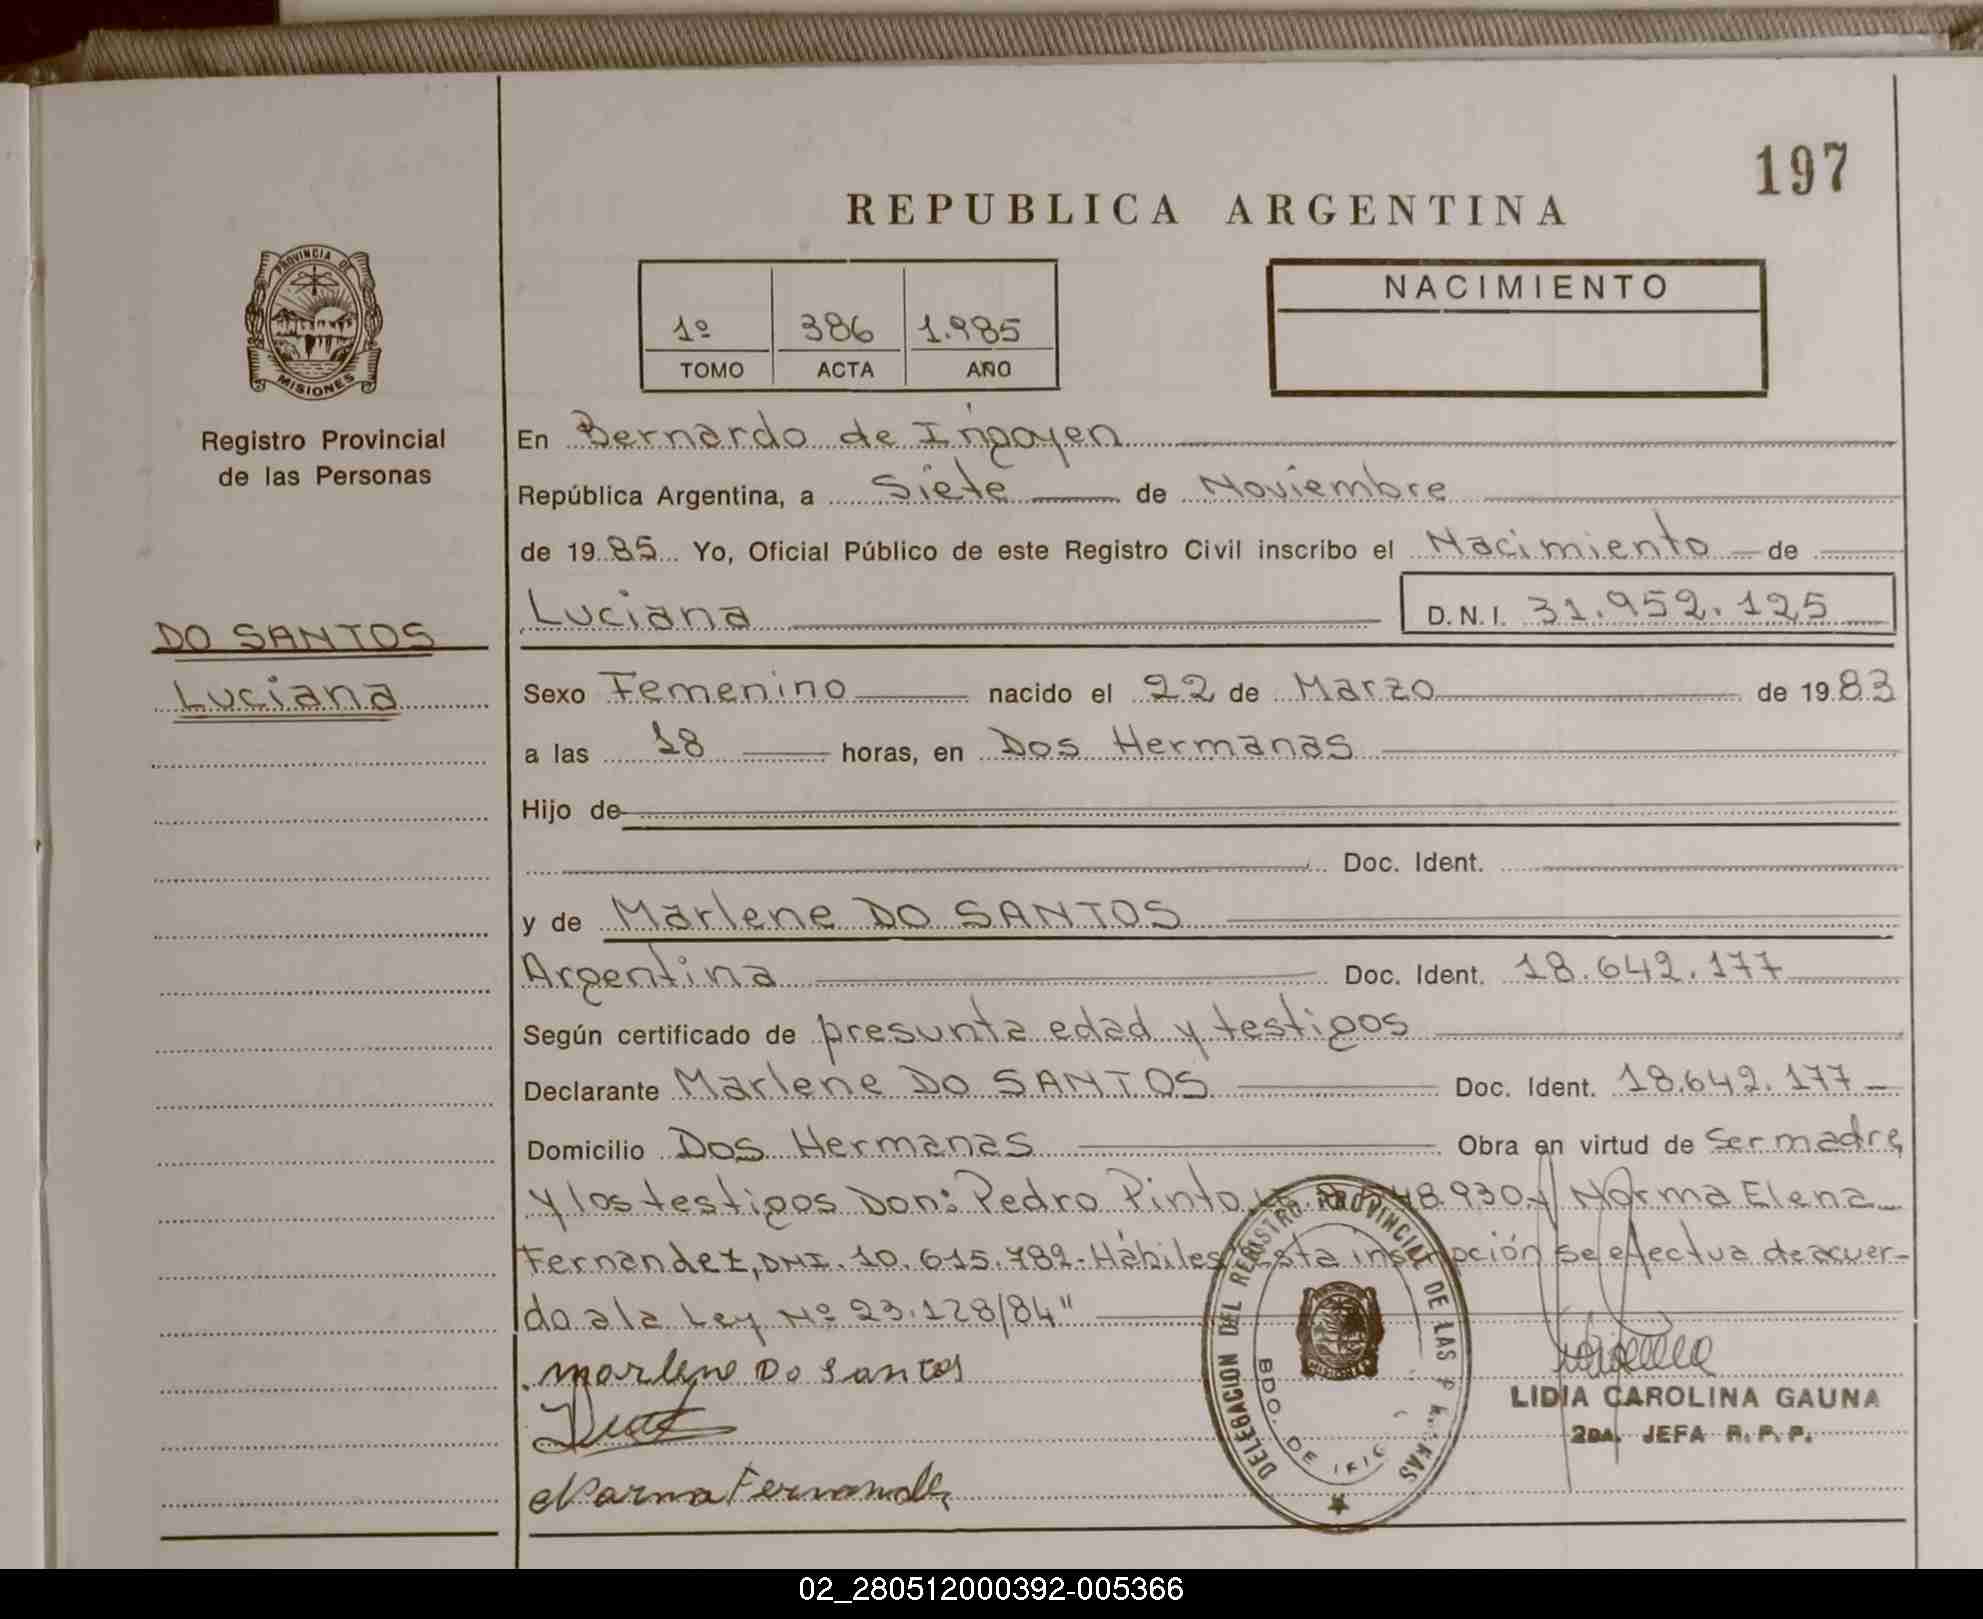 197
REPUBLICA ARGENTINA
PROVINCIA DE
MISIONES
Registro Provincial
de las Personas
1º 386 1.985
TOMO ACTA AÑO
NACIMIENTO
En Bernardo de Irigoyen
República Argentina, a Siete de Noviembre
de 1985 Yo, Oficial Público de este Registro Civil inscribo el Nacimiento de
Luciana D.N.I. 31.952.125
DO SANTOS
Luciana
Sexo Femenino nacido el 22 de Marzo de 1983
a las 18 horas, en Dos Hermanas
Hijo de
Doc. Ident.
y de Marlene DO SANTOS
Argentina Doc. Ident. 18.642.177
Según certificado de presunta edad y testigos
Declarante Marlene DO SANTOS Doc. Ident. 18.642.177
Domicilio Dos Hermanas Obra en virtud de Ser madre
y los testigos Don: Pedro Pinto Norma Elena
Fernandez, DNI. 10.615.782- Hábiles "Esta inscripción se efectua de acuer-
do a la Ley Nº 23.128/84"
Marlene Do Santos
Norma Fernandez
DELEGACION DEL REGISTRO PROVINCIAL DE LAS PERSONAS
BDO. DE IRIG
MISIONES
LIDIA CAROLINA GAUNA
2DA. JEFA R.P.P.
02_280512000392-005366